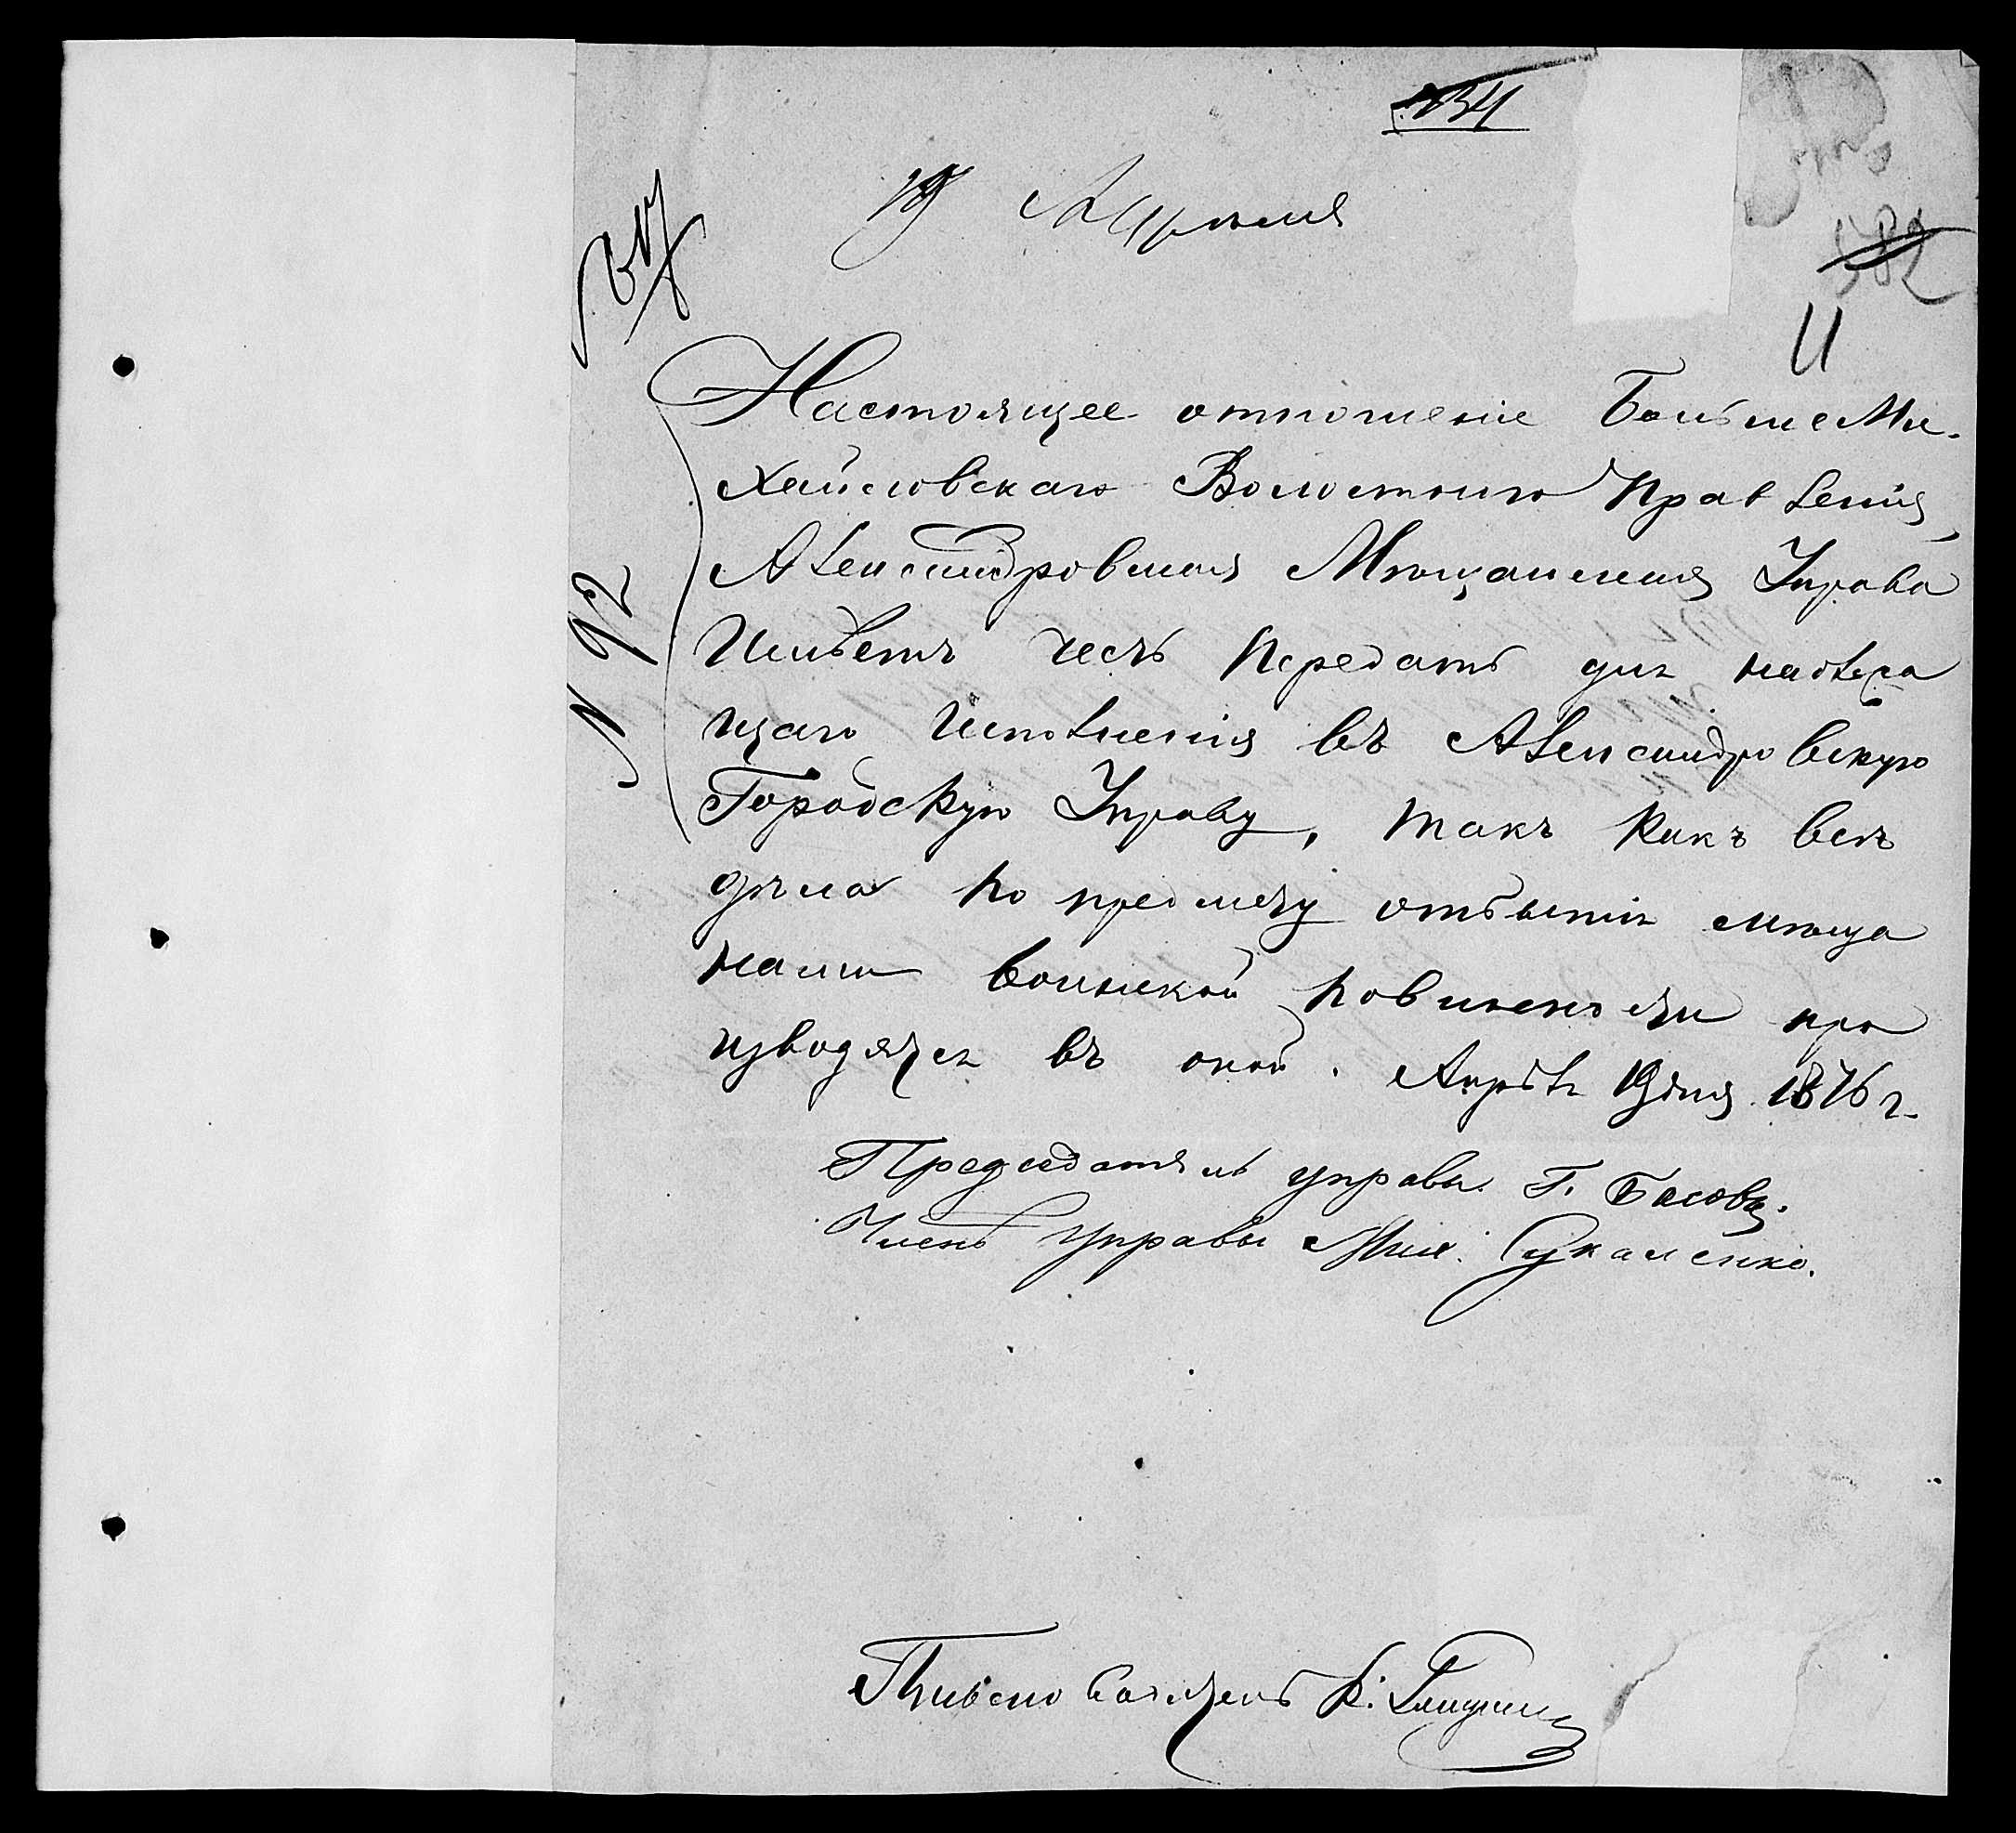 334
19 Апреля
582
11
Настоящее отношеніе Больше Ми-
хайловскаго Волостного Правленія,
Александровская Мѣщанская Управа
Имѣетъ честь Передать для надлежа
щаго исполненія въ Александровскую
Городскую Управу, такъ какъ всѣ
дѣла по предмету отбытія мѣща
нами воинской повинности про
изводятся въ оной. Апрѣля 19 дня 1876 г.
№ 92
Предсѣдатель управы Г. Басовъ.
Членъ Управы Мих. Сукаленко.
Письмоводитель К.